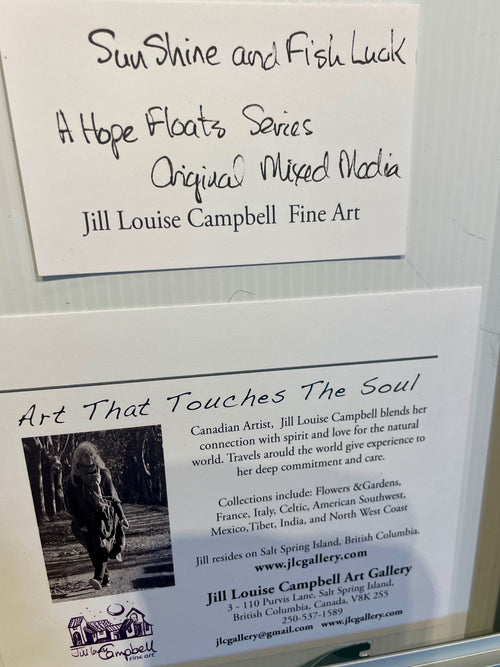 SunShine and Fish Luck
A Hope Floats Series
Original Mixed Media
Jill Louise Campbell Fine Art
Art That Touches The Soul
Canadian Artist, Jill Louise Campbell blends her
connection with spirit and love for the natural
world. Travels arould the world give experience to
her deep commitment and care.
Collections include: Flowers &Gardens,
France, Italy, Celtic, American Southwest,
Mexico,Tibet, India, and North West Coast
Jill resides on Salt Spring Island, British Columbia.
www.jlcgallery.com
Jill Louise Campbell Art Gallery
3 - 110 Purvis Lane, Salt Spring Island,
British Columbia, Canada, V8K 2S5
250-537-1589
jlcgallery@gmail.com www.jlcgallery.com
Jill Louise Campbell
fine art